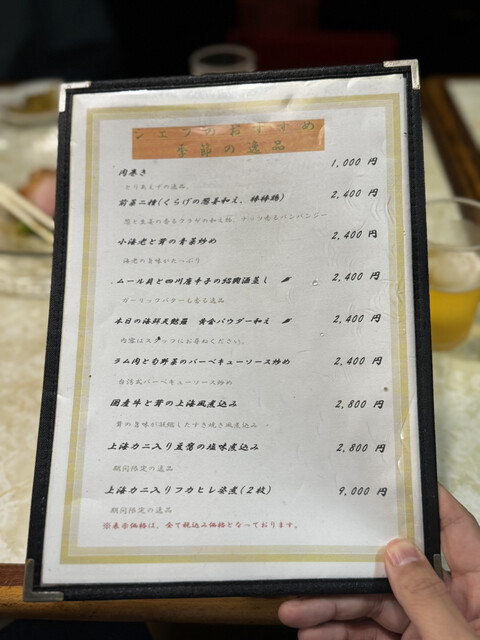 シェフのおすすめ
季節の逸品
肉巻き 1,000 円
とりあえずの逸品。
前菜二種(くらげの葱姜和え、棒棒鶏) 2,400 円
葱と生姜の香るクラゲの和え物、ナッツ香るバンバンジー
小海老と茸の青菜炒め 2,400 円
海老の旨味がたっぷり
ムール貝と四川唐辛子の紹興酒蒸し 2,400 円
ガーリックバターも香る逸品
本日の海鮮天麩羅 黄金パウダー和え 2,400 円
内容はスタッフにお尋ねください。
ラム肉と旬野菜のバーベキューソース炒め 2,400 円
台湾式バーベキューソース炒め
国産牛と茸の上海風煮込み 2,800 円
茸の旨味が凝縮したすき焼き風煮込み
上海カニ入り豆腐の塩味煮込み 2,800 円
期間限定の逸品
上海カニ入りフカヒレ姿煮(2枚) 9,000 円
期間限定の逸品
※表示価格は、全て税込み価格となっております。